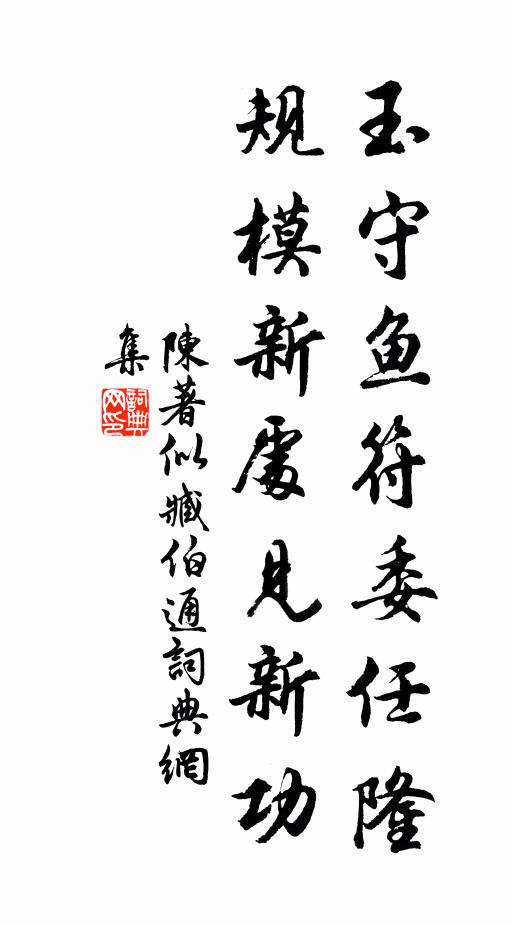 玉守鱼符委任隆
規模新處見新功
陳著似臧伯通詞典網
集
詞典
网印